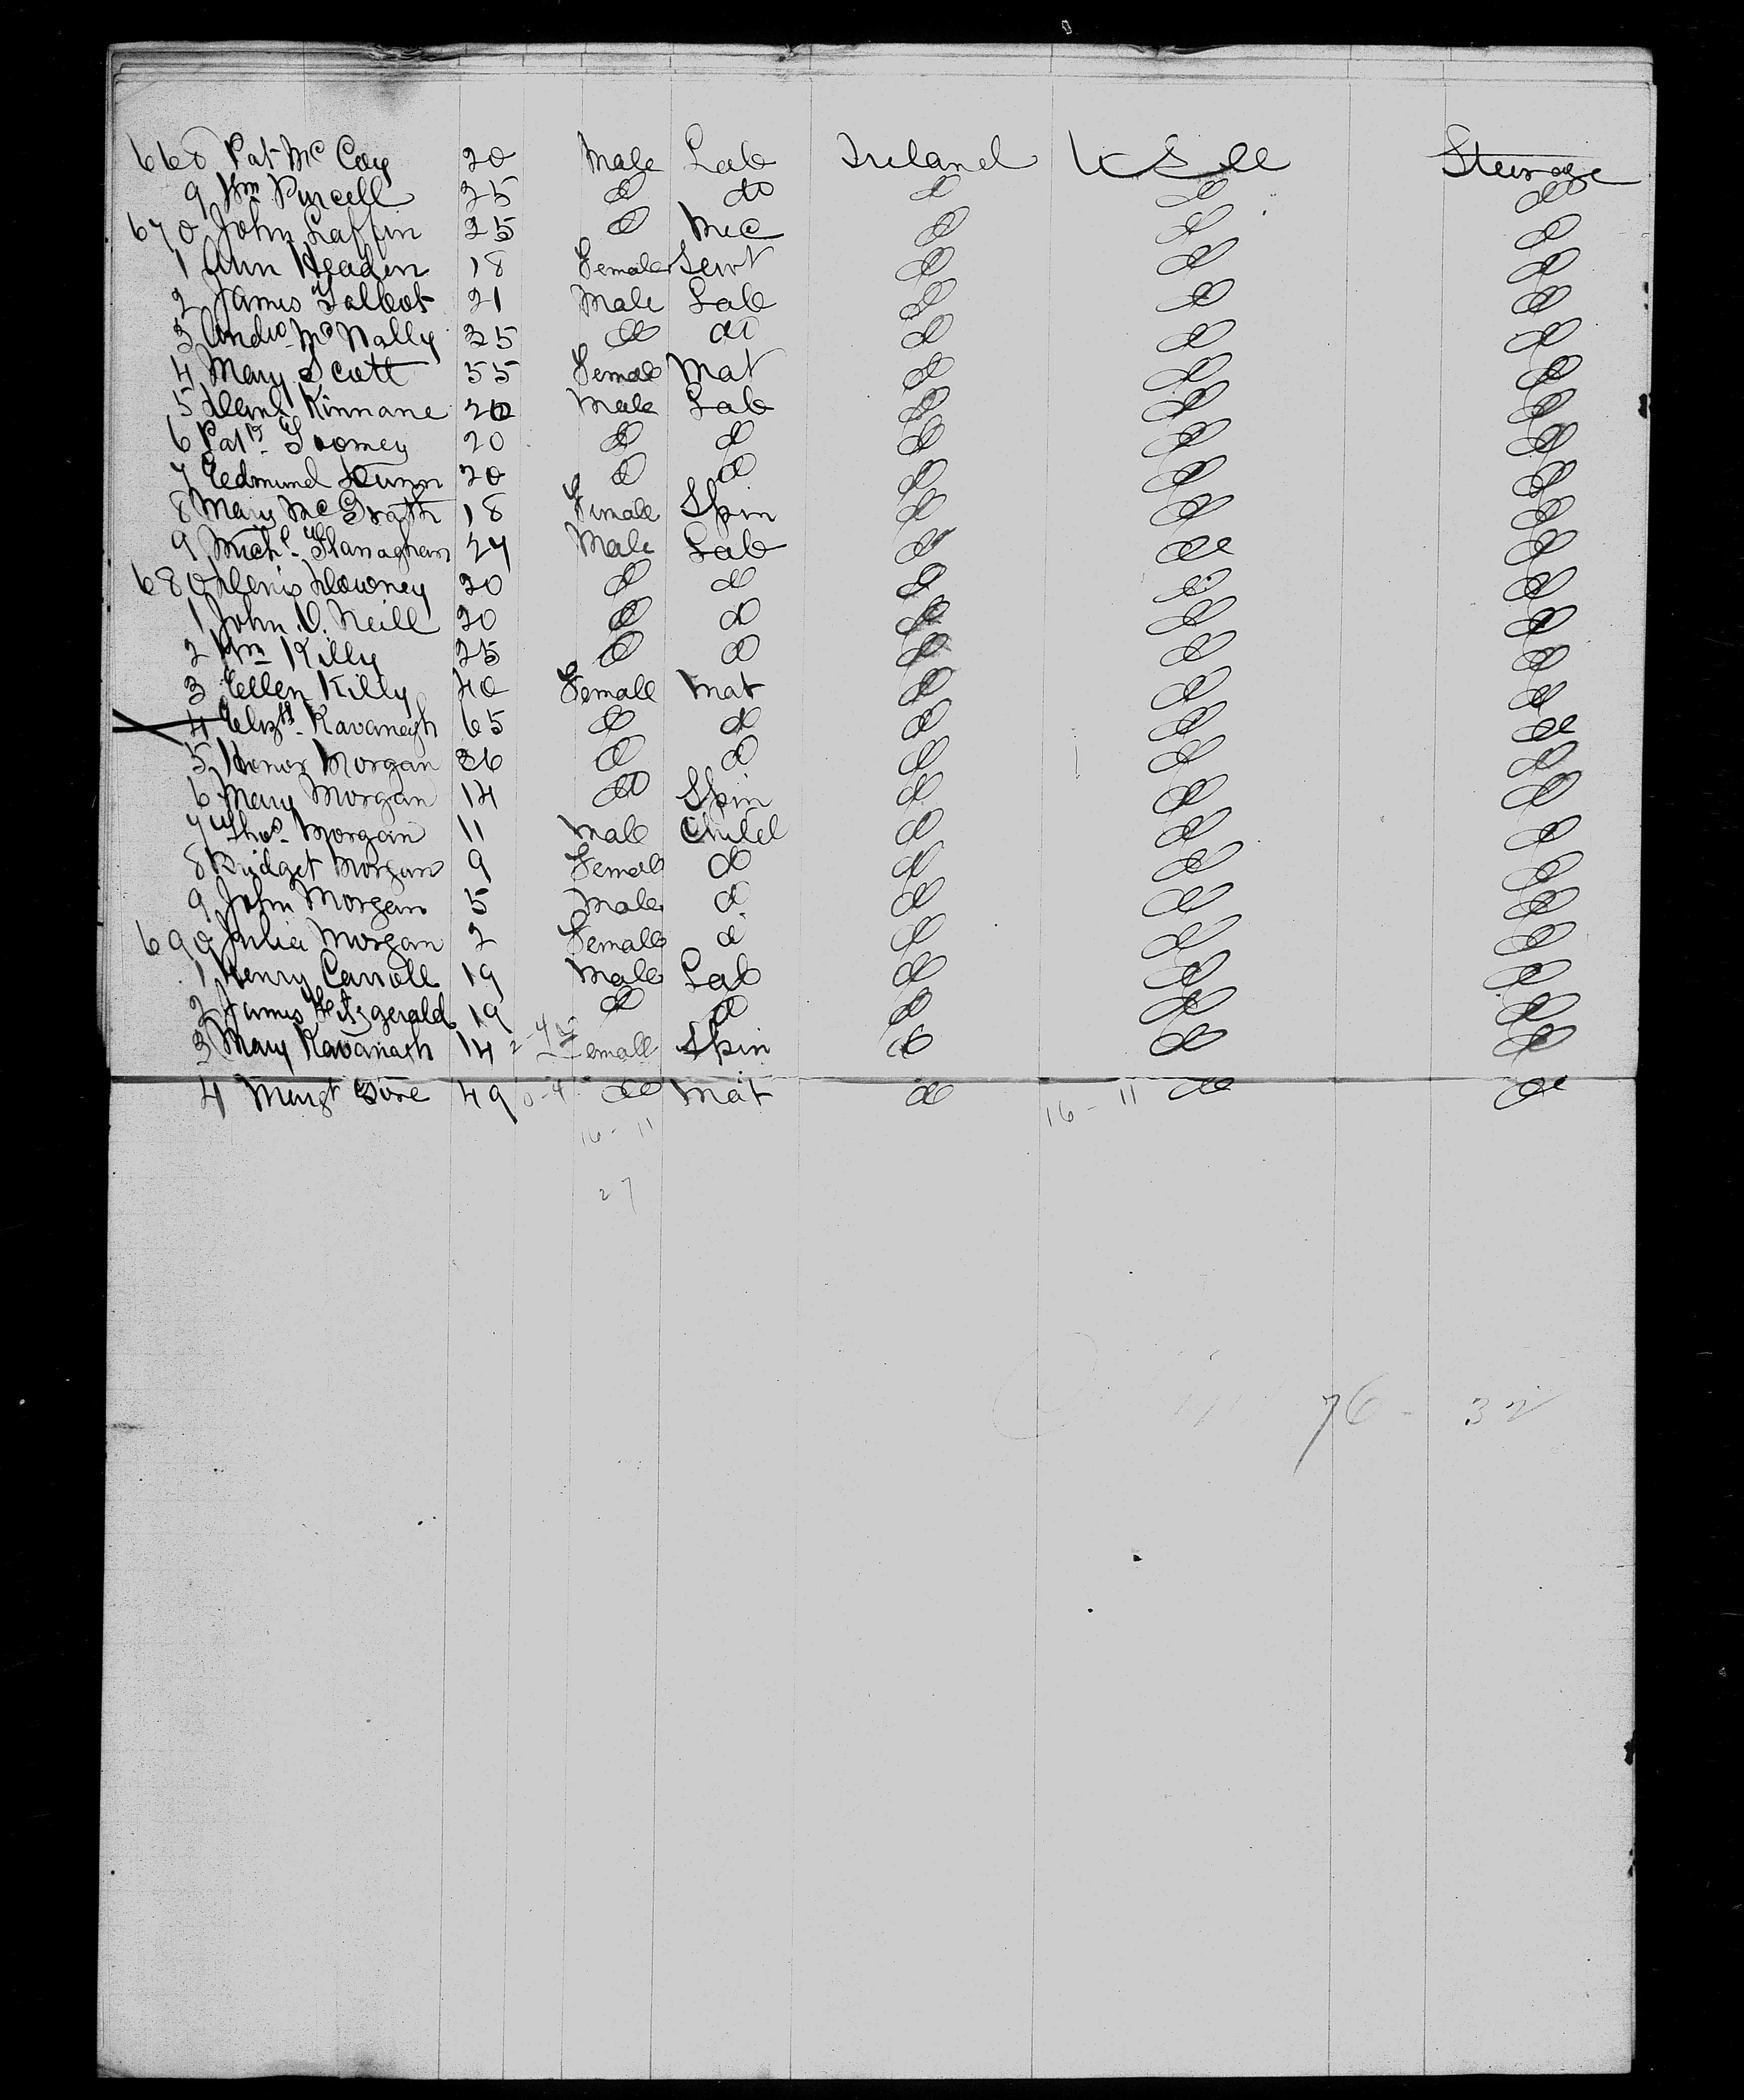 668 Pat Mc Coy 20 Male Lab Ireland U S A Steerage
9 Wm Purcell 25 do do do do do
670 John Laffin 25 do Mec do do do
1 Ann Headen 18 Female Servt do do do
2 James Talbot 21 Male Lab do do do
3 Andw McNally 35 do do do do do
4 Mary Scott 55 Female Mat do do do
5 Kinnane 20 Male Lab do do do
6 Patk Toomey 20 do do do do do
7 Edmund Dunn 20 do do do do do
8 Mary McGrath 18 Female Spin do do do
9 Michl Flanaghan 24 Male Lab do do do
680 Denis Downey 20 do do do do do
1 John O. Neill 20 do do do do do
2 Wm Killy 25 do do do do do
3 Ellen Killy 40 Female Mat do do do
4 Elizth Kavanagh 65 do do do do do
5 Honor Morgan 36 do do do do do
6 Mary Morgan 14 do Spin do do do
7 Thos Morgan 11 Male Child do do do
8 Bridget Morgan 9 Female do do do do
9 John Morgan 5 Male do do do do
690 Julia Morgan 2 Female do do do do
1 Henry Carroll 19 Male Lab do do do
2 James Fitzgerald 19 do do do do do
3 Mary Kavanagh 14 Female Spin do do do
4 Margt Gore 49 do Mat do do do
16 - 11 16 - 11
27
76 - 32